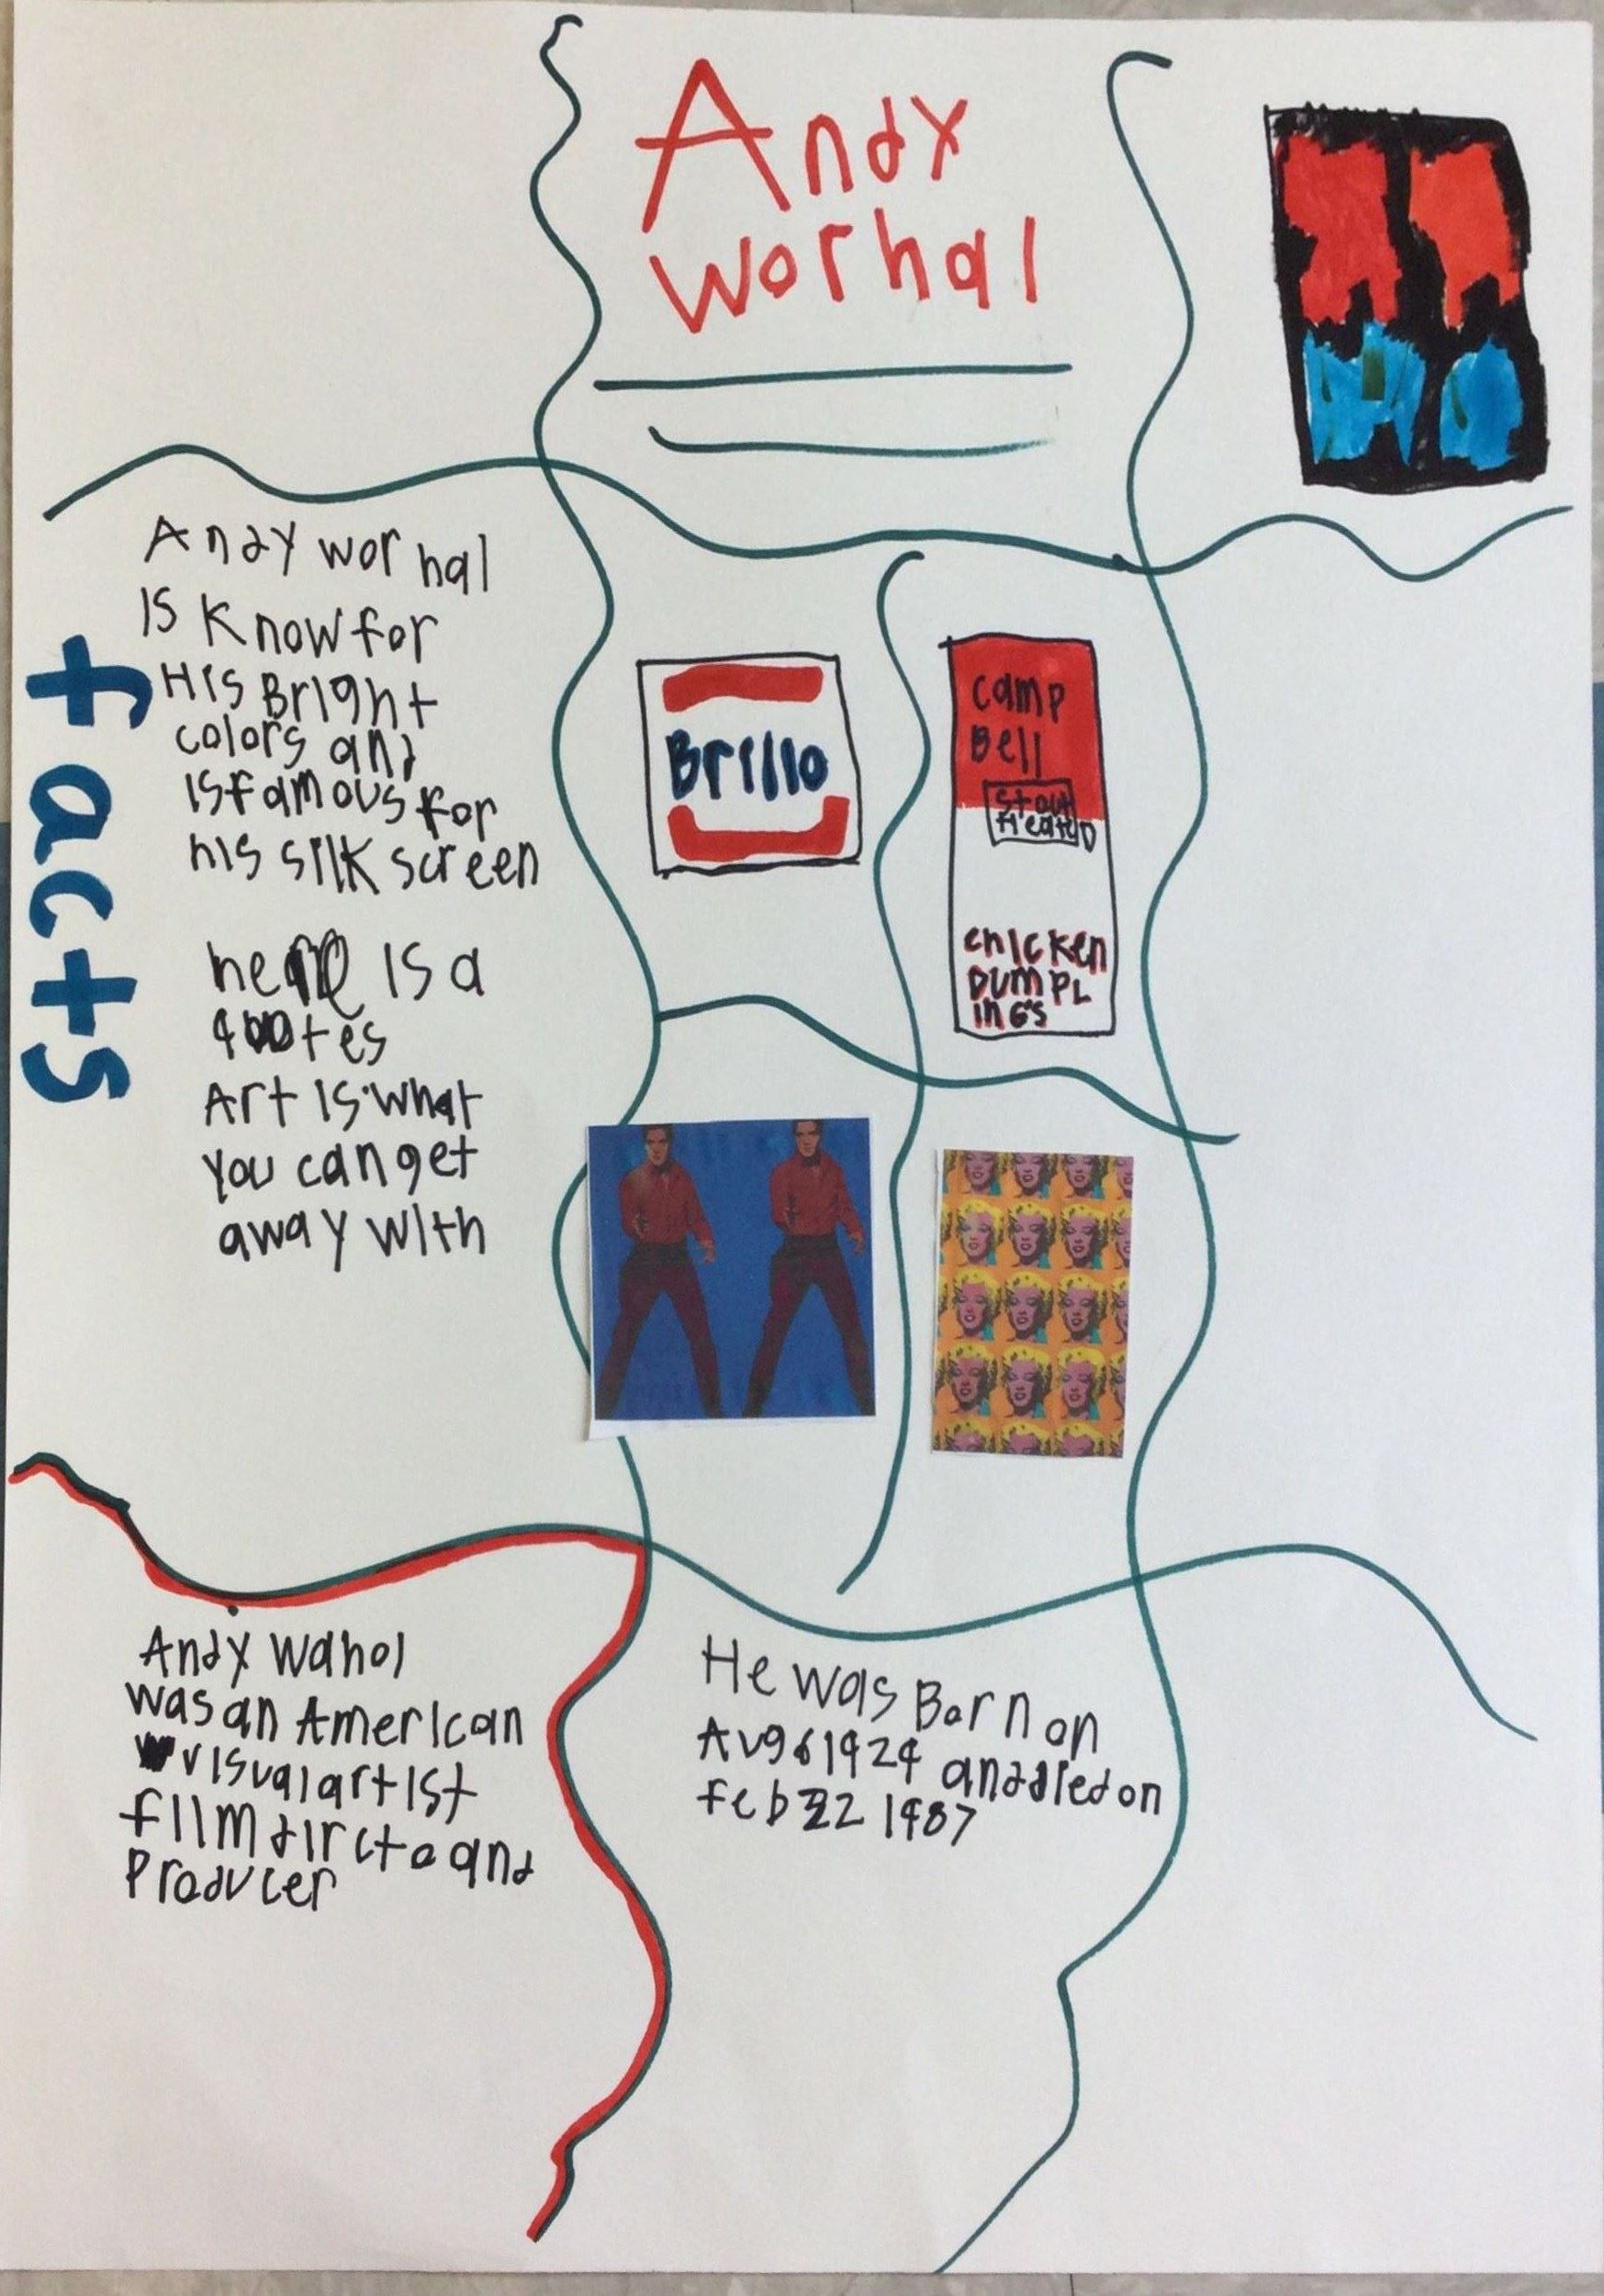 Andy
Worhal
facts
Andy worhal
Is Know for
His Bright
colors and
is famous for
his silk screen
here is a
quotes
Art is what
You can get
away with
Brillo
camp
Bell
chicken
DUMPL
inG's
Andy Wahol
was an American
visual artist
film dircto and
Producer
He was Born on
Aug 6 1924 and died on
feb 22 1987